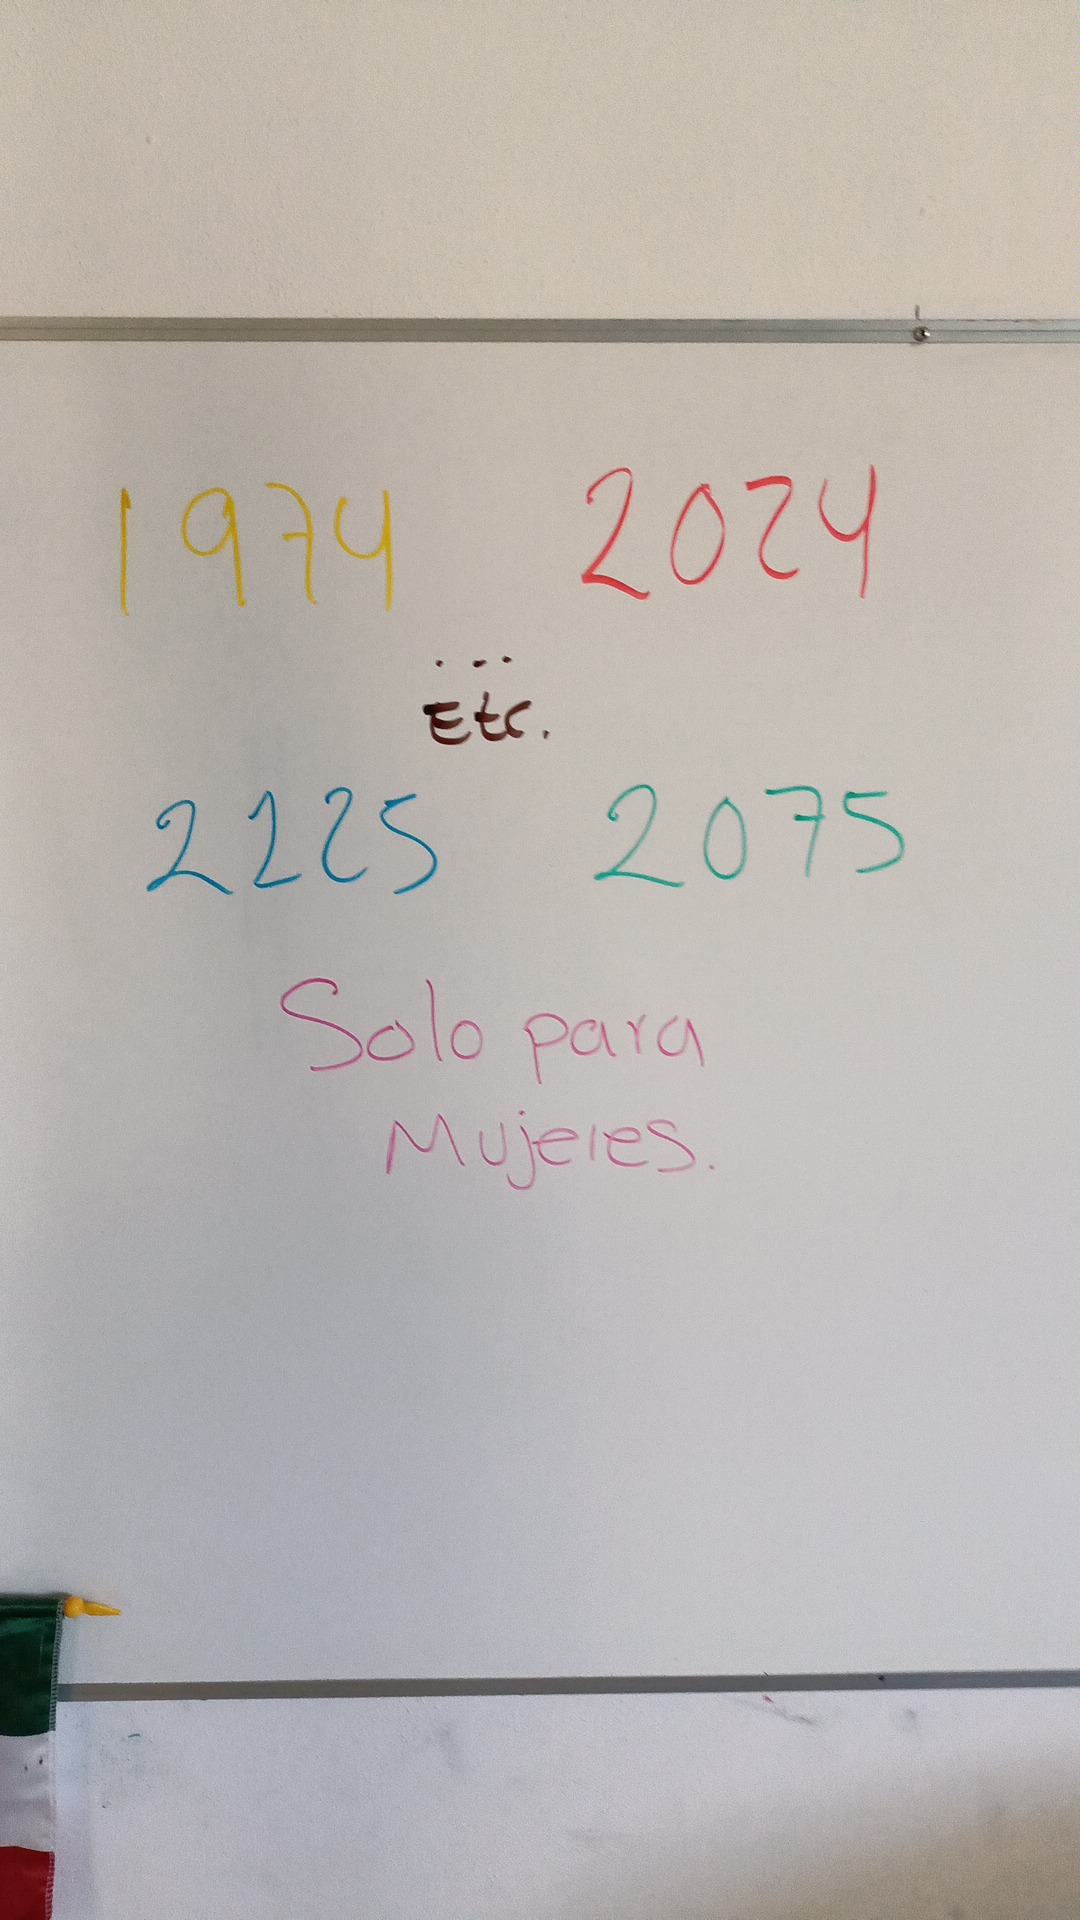 1974 2024
...
Etc.
2225 2075
Solo para
Mujeres.